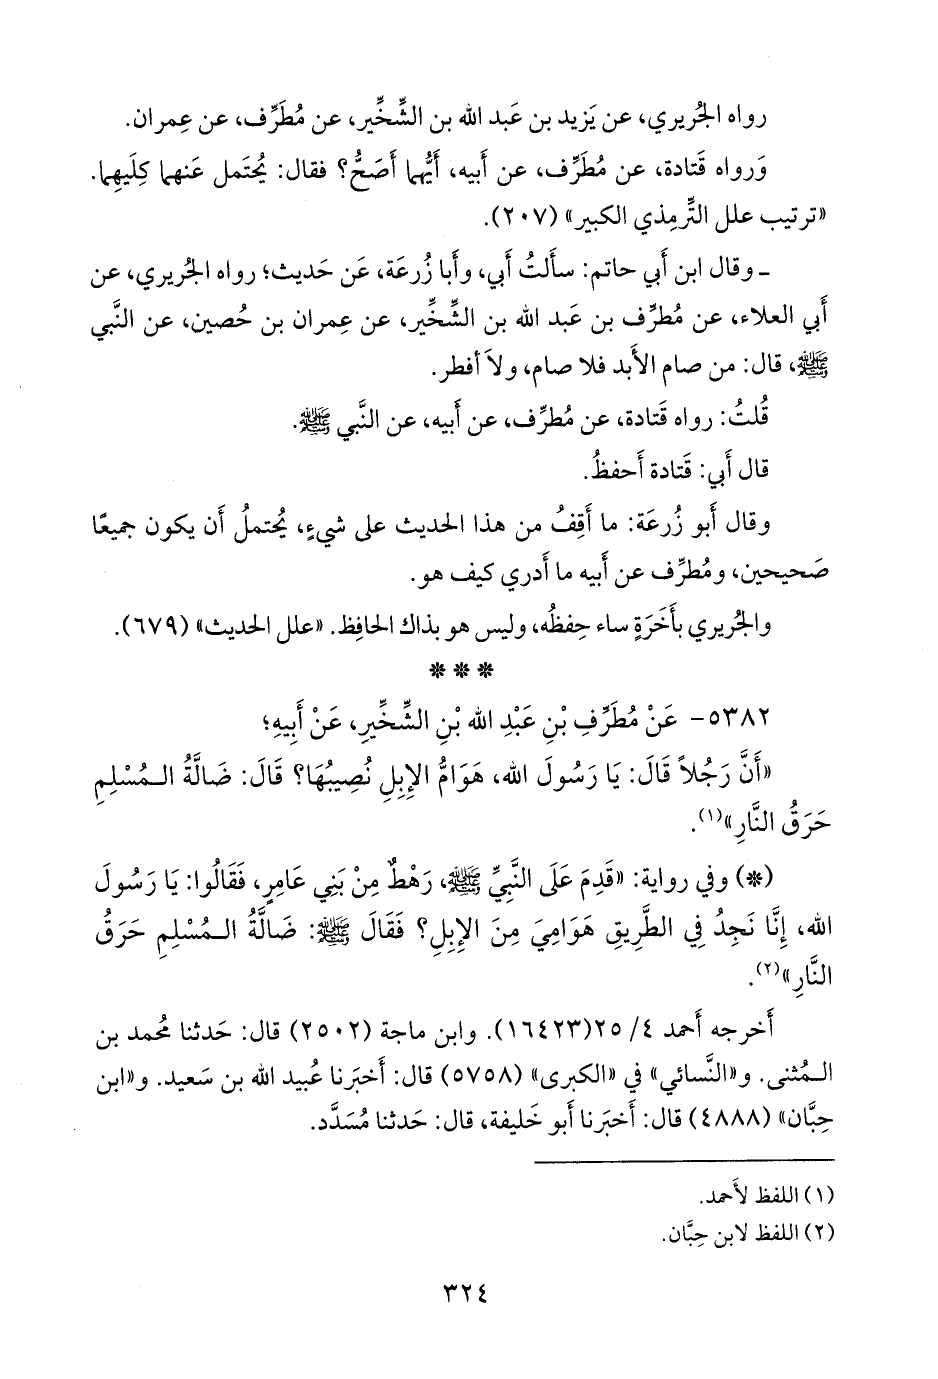 رواه الجُريري، عن يَزيد بن عَبد الله بن الشِّخِّير، عن مُطَرِّف، عن عِمران.
وَرواه قَتادة، عن مُطَرِّف، عن أَبيه، أَيُّهما أَصَحُّ؟ فقال: يُحتَمل عَنهما كِلَيهِما.
«ترتيب علل التِّرمِذي الكبير» (٢٠٧).
ـ وقال ابن أَبي حاتم: سأَلتُ أَبي، وأَبا زُرعَة، عَن حَديث؛ رواه الجُريري، عن
أَبي العلاء، عن مُطرِّف بن عَبد الله بن الشِّخِّير، عن عِمران بن حُصين، عن النَّبي
ﷺ، قال: من صام الأَبد فلا صام، ولاَ أَفطر.
قُلتُ: رواه قَتادة، عن مُطرِّف، عن أَبيه، عن النَّبي ﷺ.
قال أَبي: قَتادة أَحفظُ.
وقال أَبو زُرعَة: ما أَقِفُ من هذا الحديث على شيءٍ، يُحتملُ أَن يكون جميعًا
صَحيحين، ومُطرِّف عن أَبيه ما أَدري كيف هو.
والجُريري بأَخَرَةٍ ساء حِفظُه، وليس هو بذاك الحافِظ. «علل الحديث» (٦٧٩).
* * *
٥٣٨٢- عَنْ مُطَرِّفِ بْنِ عَبْدِ الله بْنِ الشِّخِّيرِ، عَنْ أَبِيهِ؛
«أَنَّ رَجُلاً قَالَ: يَا رَسُولَ الله، هَوَامُّ الإِبِلِ نُصِيبُهَا؟ قَالَ: ضَالَّةُ الـمُسْلِمِ
حَرَقُ النَّارِ»(١).
(*) وفي رواية: «قَدِمَ عَلَى النَّبِيِّ ﷺ، رَهْطٌ مِنْ بَنِي عَامِرٍ، فَقَالُوا: يَا رَسُولَ
الله، إِنَّا نَجِدُ فِي الطَّرِيقِ هَوَامِيَ مِنَ الإِبِلِ؟ فَقَالَ ﷺ: ضَالَّةُ الـمُسْلِمِ حَرَقُ
النَّارِ»(٢).
أَخرجه أَحمد ٤/ ٢٥(١٦٤٢٣). وابن ماجة (٢٥٠٢) قال: حَدثنا مُحمد بن
الـمُثنى. و«النَّسائي» في «الكبرى» (٥٧٥٨) قال: أَخبَرنا عُبيد الله بن سَعيد. و«ابن
حِبَّان» (٤٨٨٨) قال: أَخبَرنا أَبو خَليفة، قال: حَدثنا مُسَدَّد.
(١) اللفظ لأَحمد.
(٢) اللفظ لابن حِبَّان.
٣٢٤